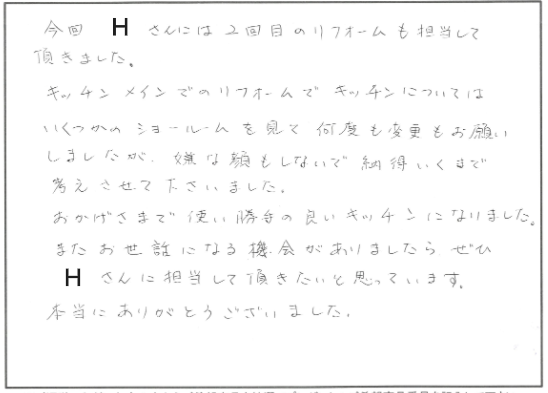 今回 Hさんには2回目のリフォームも担当して
頂きました。
キッチンメインでのリフォームでキッチンについては
いくつかのショールームを見て何度も変更もお願い
しましたが、嫌な顔もしないで納得いくまで
考えさせて下さいました。
おかげさまで使い勝手の良いキッチンになりました。
またお世話になる機会がありましたらぜひ
Hさんに担当して頂きたいと思っています。
本当にありがとうございました。